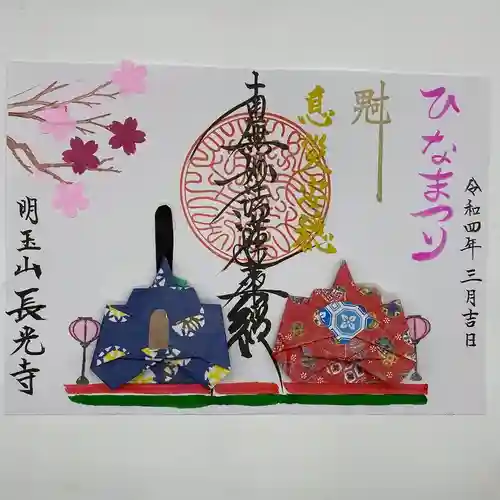 ひなまつり
令和四年三月吉日
魁
息災安穏
南無妙法蓮華経
明玉山
長光寺